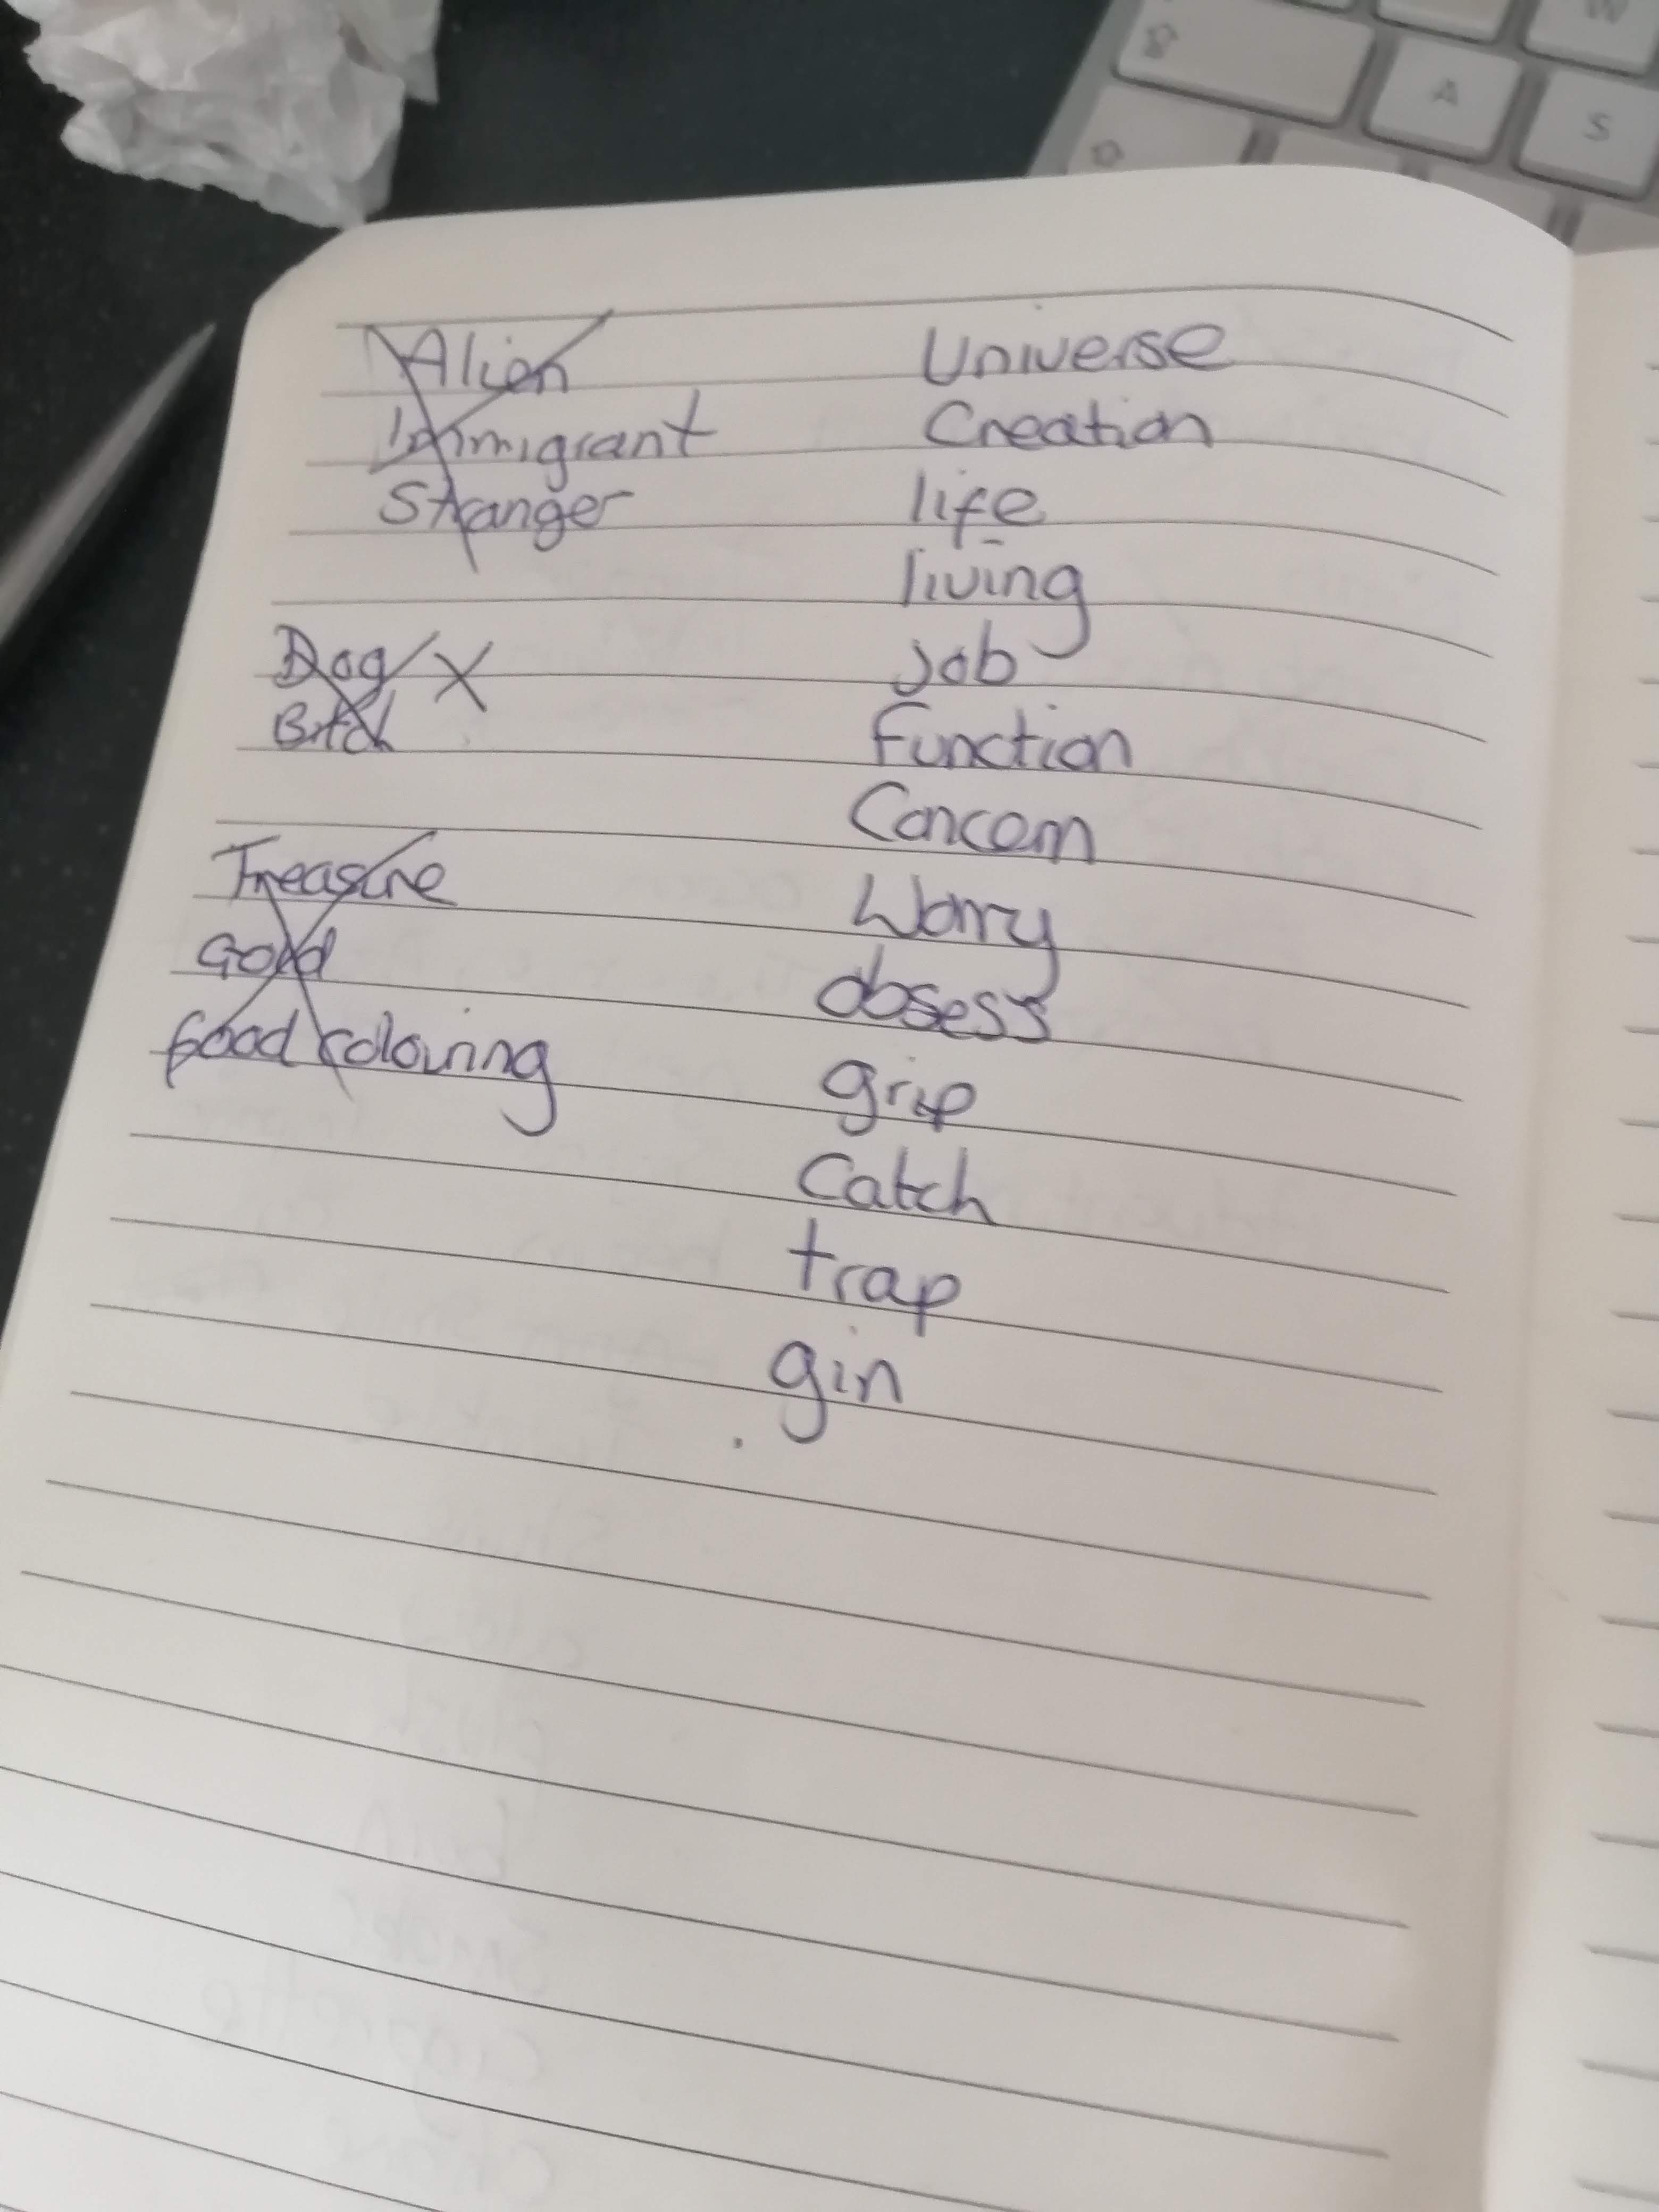 Alien
Immigrant
Stranger
Dog X
Bitch
Treasure
Gold
food colouring
Universe
Creation
life
living
job
Function
Concern
Worry
obsess
grip
Catch
trap
gin
A
S
W